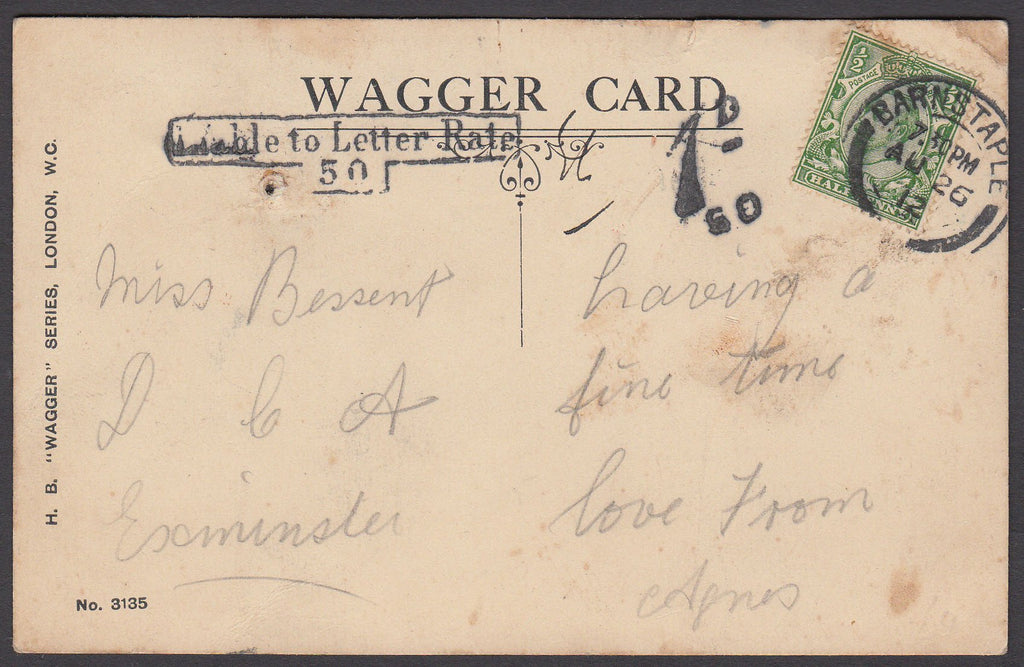 WAGGER CARD
Liable to Letter Rate
50
1D
50
½
POSTAGE
½
HALFPENNY
BARNSTAPLE
7.30 PM
AU 26
12
Miss Bessent
D C A
Exminster
having a
fine time
love From
Agnes
H. B. "WAGGER" SERIES, LONDON, W.C.
No. 3135